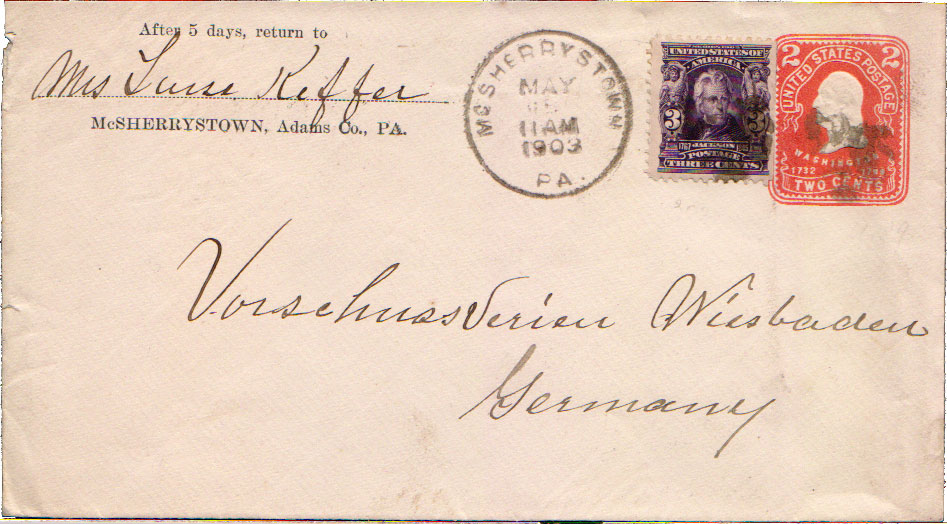 After 5 days, return to
Mrs Luise Keffer
McSHERRYSTOWN, Adams Co., PA.
McSHERRYSTOWN
MAY
11 AM
1903
PA.
UNITED STATES OF
AMERICA
3 3
1767 JACKSON 1845
POSTAGE
THREE CENTS
2 2
UNITED STATES POSTAGE
WASHINGTON
1732
TWO CENTS
VorschussVerien Wiesbaden
Germany